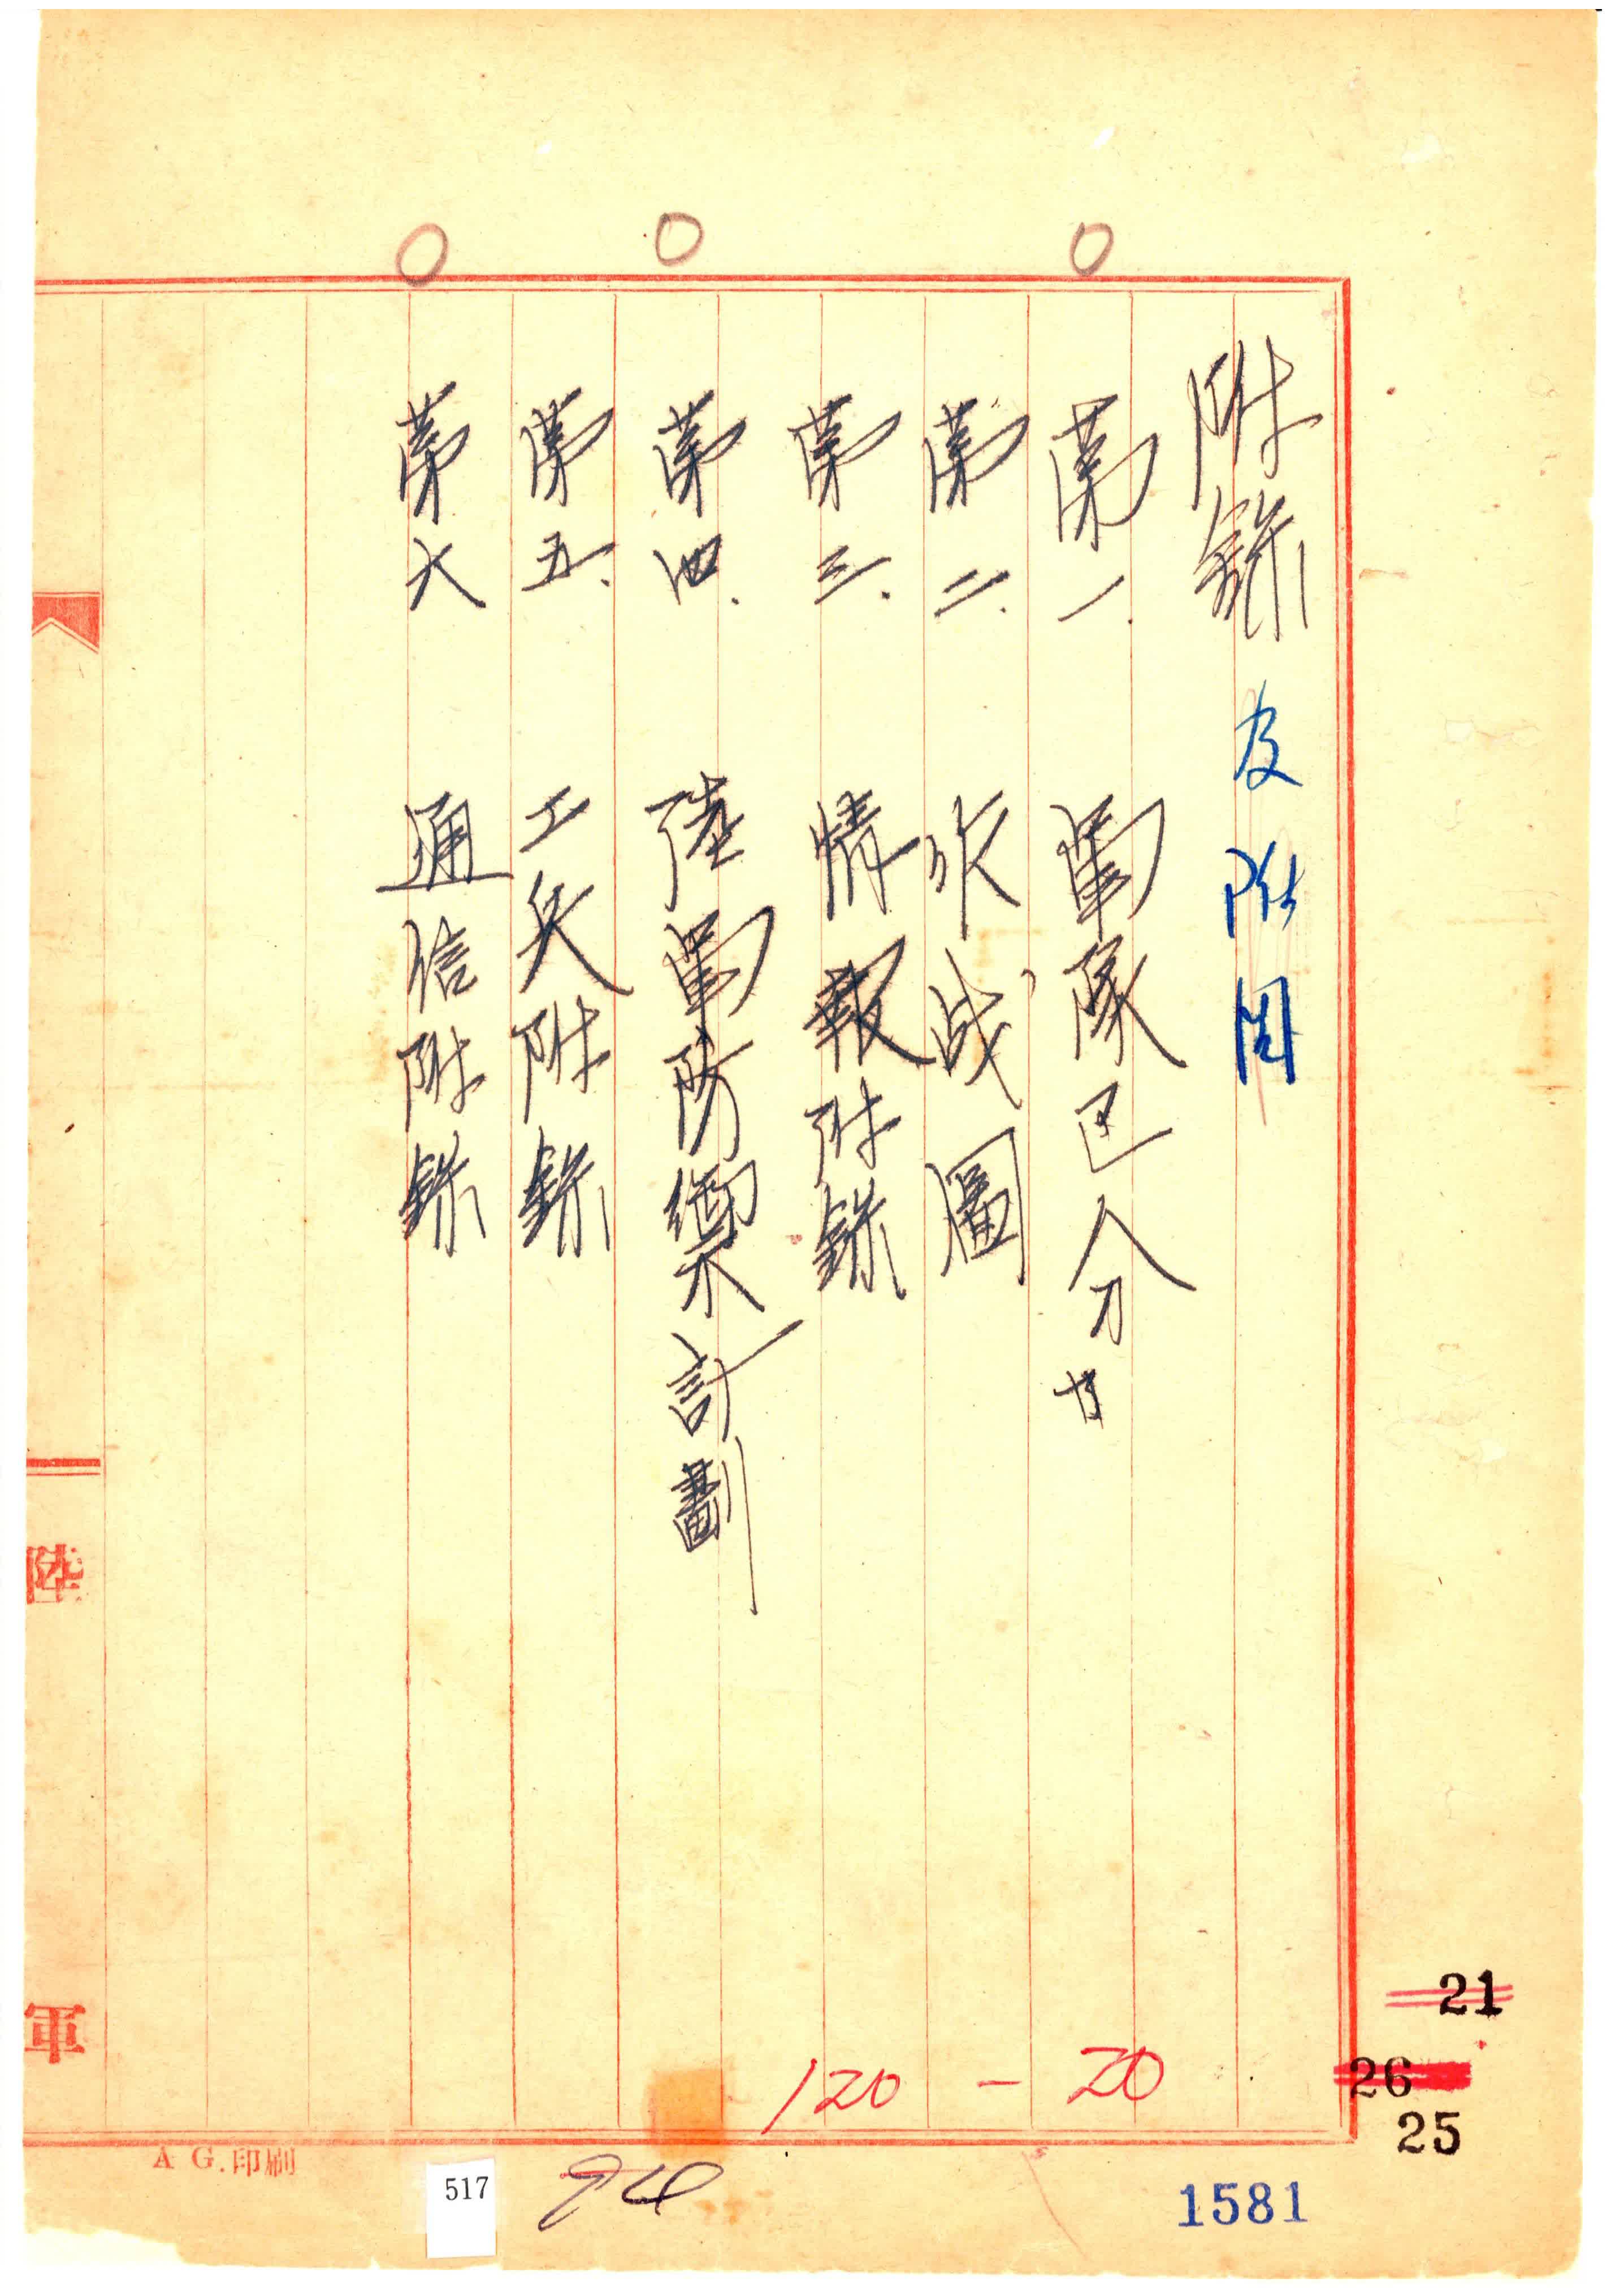 附錄及附图
第一. 軍隊區分
第二. 作战圖
第三. 情報附錄
第四. 陸軍防禦計劃
第五. 工兵附錄
第六 通信附錄
陸
軍
120 - 20
21
26
25
A G.印刷
517
94
1581